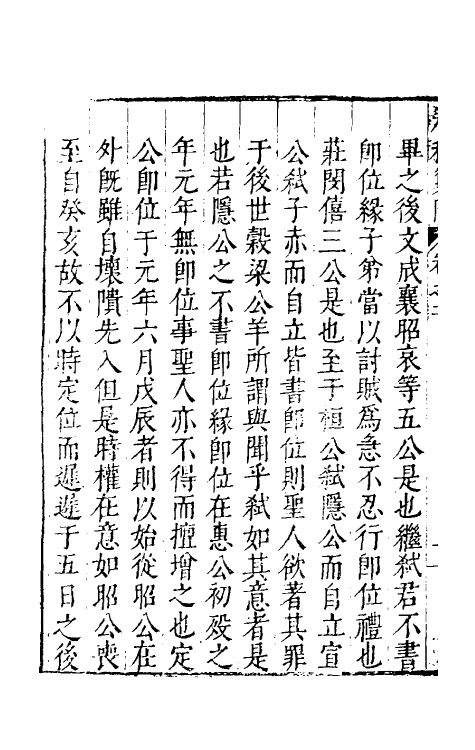 畢之後文成襄昭哀等五公是也繼弑君不書
卽位緣子弟當以討賊爲急不忍行卽位禮也
莊閔僖三公是也至于桓公弑隱公而自立宣
公弑子赤而自立皆書卽位則聖人欲著其罪
于後世穀梁公羊所謂與聞乎弑如其意者是
也若隱公之不書卽位緣卽位在惠公初歿之
年元年無卽位事聖人亦不得而擅增之也定
公卽位于元年六月戊辰者則以始從昭公在
外旣雖自壞隤先入但是時權在意如昭公喪
至自癸亥故不以時定位而遲遲于五日之後